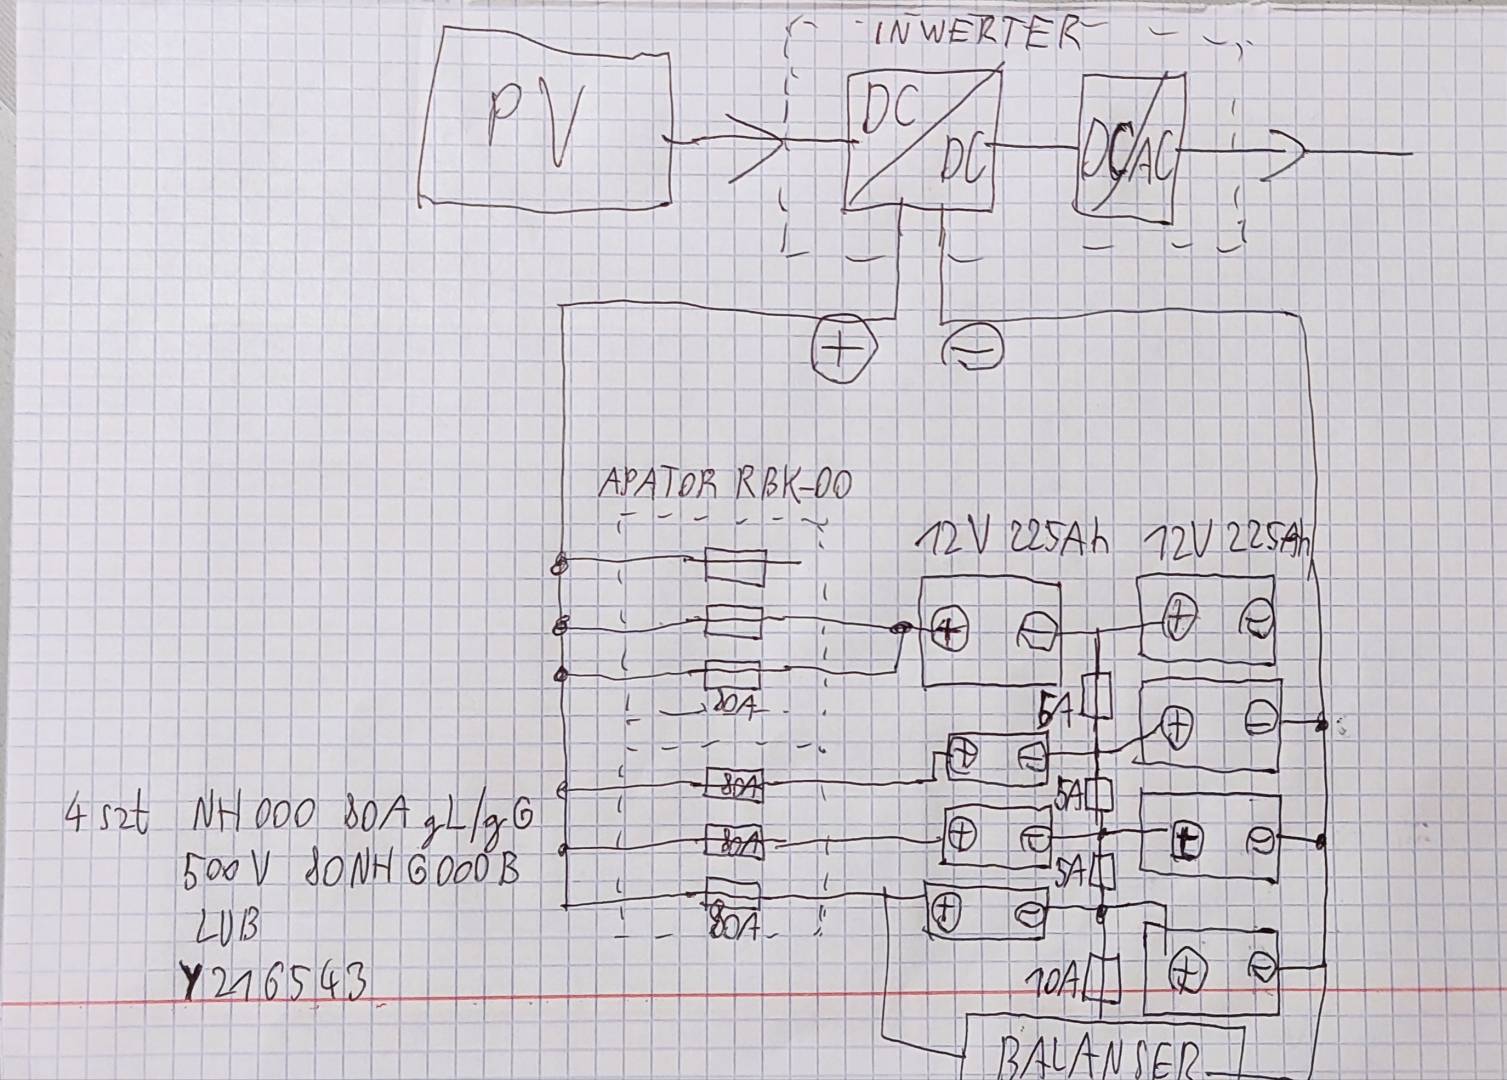 INWERTER
PV
DC
DC
DC/AC
+
−
APATOR RBK-00
12V 225Ah 12V 225Ah
+ − + −
80A
5A
+ −
+ −
80A
5A
4 szt NH 000 80A gL/gG
80A
+ −
+ −
500V 80NHG000B
5A
80A
+ −
LUB
Y216543
10A
+ −
BALANSER